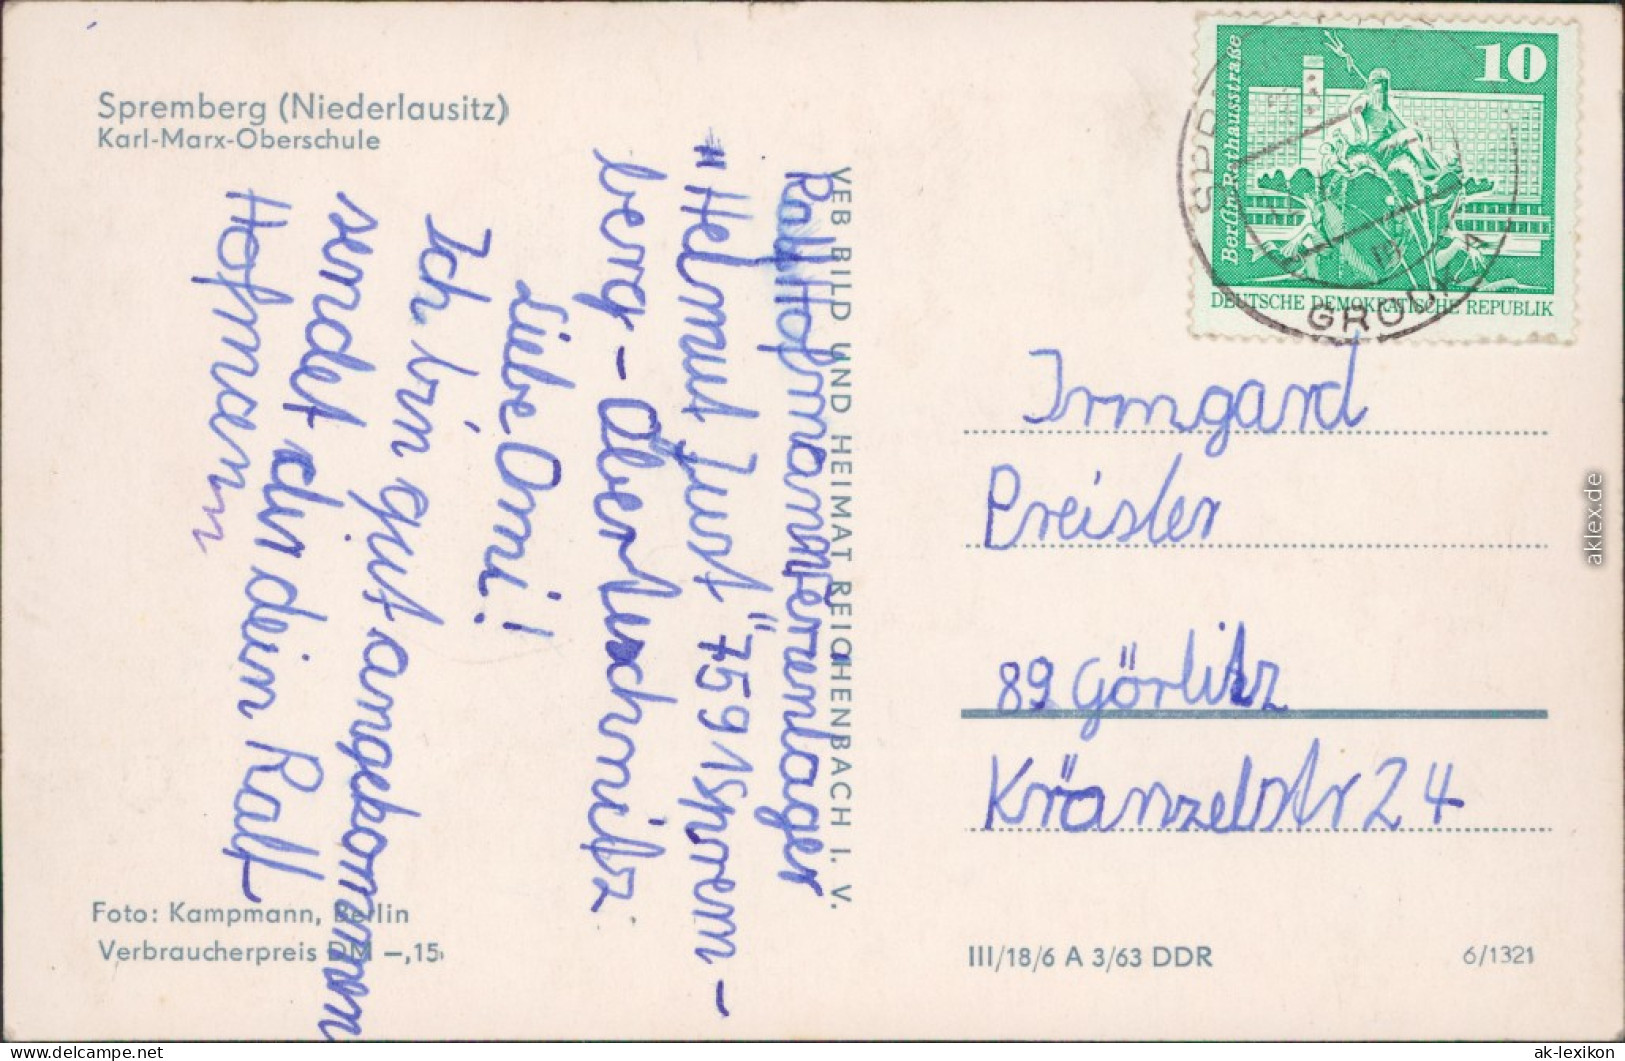 Spremberg (Niederlausitz)
Karl-Marx-Oberschule
Ralf Hofmann Ferienlager
"Helmut Just" 759 1 Sprem-
berg - Oberteschnitz
Liebe Omi!
Ich bin gut angekommen
sendet dir dein Ralf
Hofmann
Foto: Kampmann, Berlin
Verbraucherpreis DM -,15
VEB BILD UND HEIMAT REICHENBACH I. V.
10
Berlin-Rathausstraße
DEUTSCHE DEMOKRATISCHE REPUBLIK
Irmgard
Preisler
89 Görlitz
Kränzelstr 24
III/18/6 A 3/63 DDR
6/1321
aklex.de
ak-lexikon
delcampe.net website